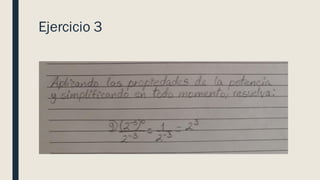 Ejercicio 3
Aplicando las propiedades de la potencia
y simplificando en todo momento, resuelva:
9) (2⁻⁵)⁰ = 1 = 2³
2⁻³ 2⁻³